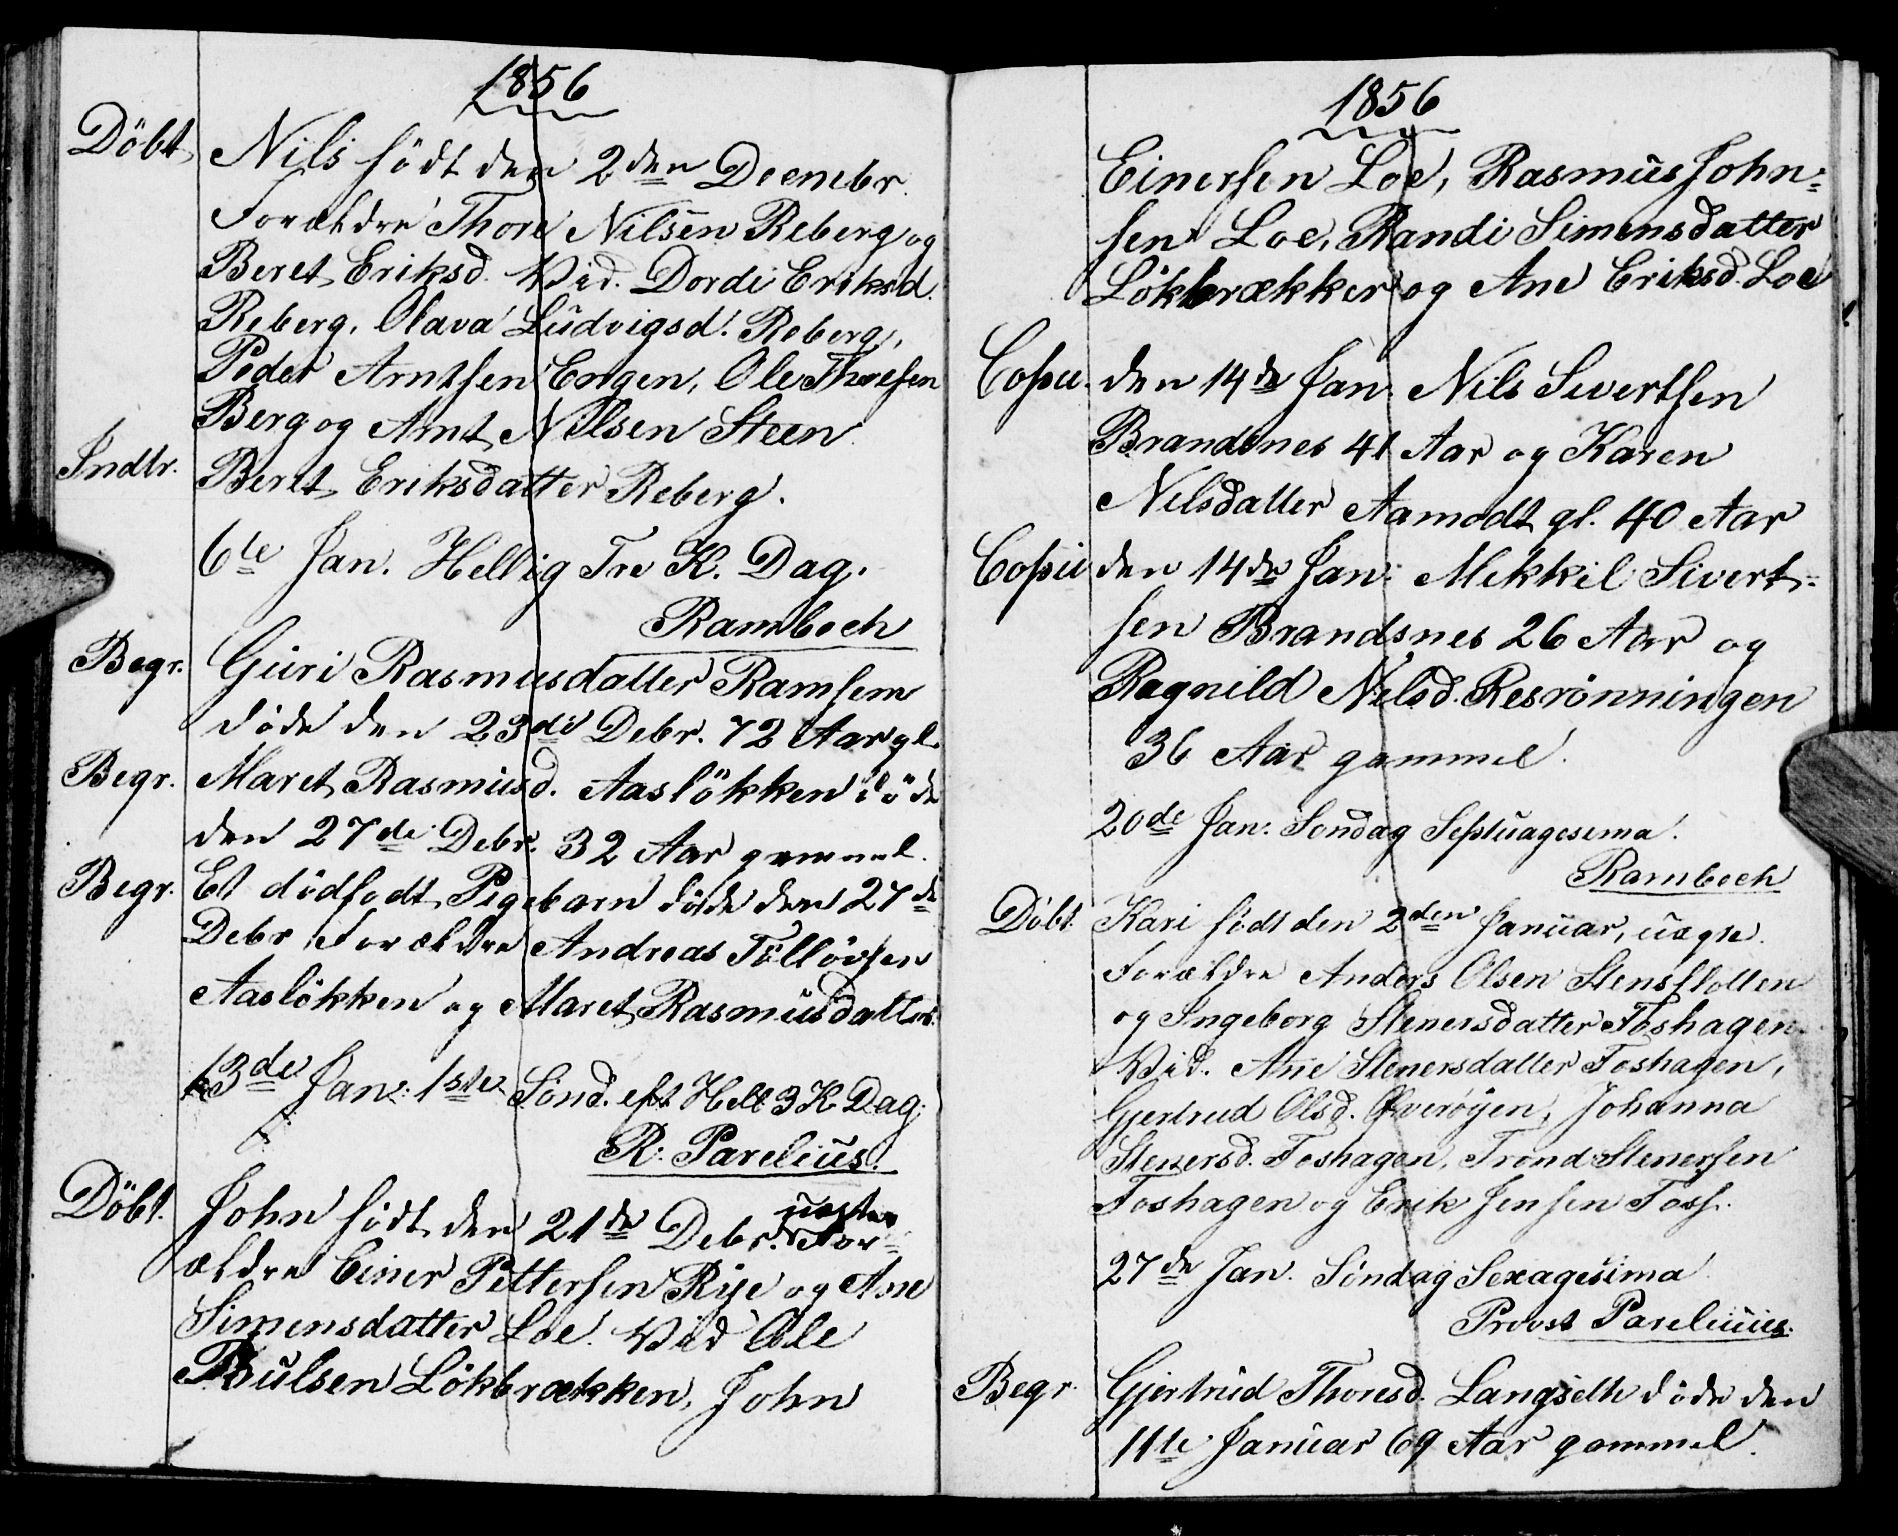 1856
Döbt Nils födt den 2den Decmbr.
Forældre Thore Nilsen Reberg og
Beret Eriksd. Vid. Dordi Eriksd.
Reberg, Olava Ludvigsd. Reberg,
Peder Arntsen Engen, Ole Thoresen
Berg og Arnt Nilsen Steen
Indtr. Beret Eriksdatter Reberg.
6te Jan. Hellig Tre K. Dag.
Rambech
Begr. Guri Rasmusdatter Ramsem
döde den 23de Debr. 72 Aar gl.
Begr. Maret Rasmusd. Aaslökken döde
den 27de Debr. 32 Aar gammel.
Begr. Et dödfodt Pigebarn döde den 27de
Debr. Forældre Andreas Tølløvsen
Aaslökken og Maret Rasmusdatter.
13de Jan. 1ste Sönd. eft Hell 3 K. Dag.
R. Parelius.
Döbt. John födt den 21de Debr. uægte For-
ældre Einer Pettersen Rye og Ane
Simensdatter Loe. Vid Ole
Paulsen Lökbrækken, John
1856
Einersen Loe, Rasmus John=
sen Loe, Randi Simensdatter
Lökbrækken og Ane Eriksd. Loe
Copu. den 14de Jan. Nils Sivertsen
Brandsnes 41 Aar og Karen
Nilsdatter Aamodt gl. 40 Aar
Copu den 14de Jan. Mikkil Sivert=
sen Brandsnes 26 Aar og
Ragnild Nilsd. Resrønningen
36 Aar gammel.
20de Jan. Søndag Septuagesema.
Rambech
Döbt. Kari födt den 2den Januar, uægte.
Forældre Anders Olsen Stensletten
og Ingeborg Stenersdatter Foshagen.
Vid. Ane Stenersdatter Foshagen,
Gjertrud Olsd. Øverøyen, Johanna
Stenersd. Foshagen, Trond Stenersen
Foshagen og Erik Jensen Foss.
27de Jan. Söndag Sexagesima
Provst Parelius.
Begr. Gjertrud Thoresd. Langseth döde den
11te Januar 69 Aar gammel.